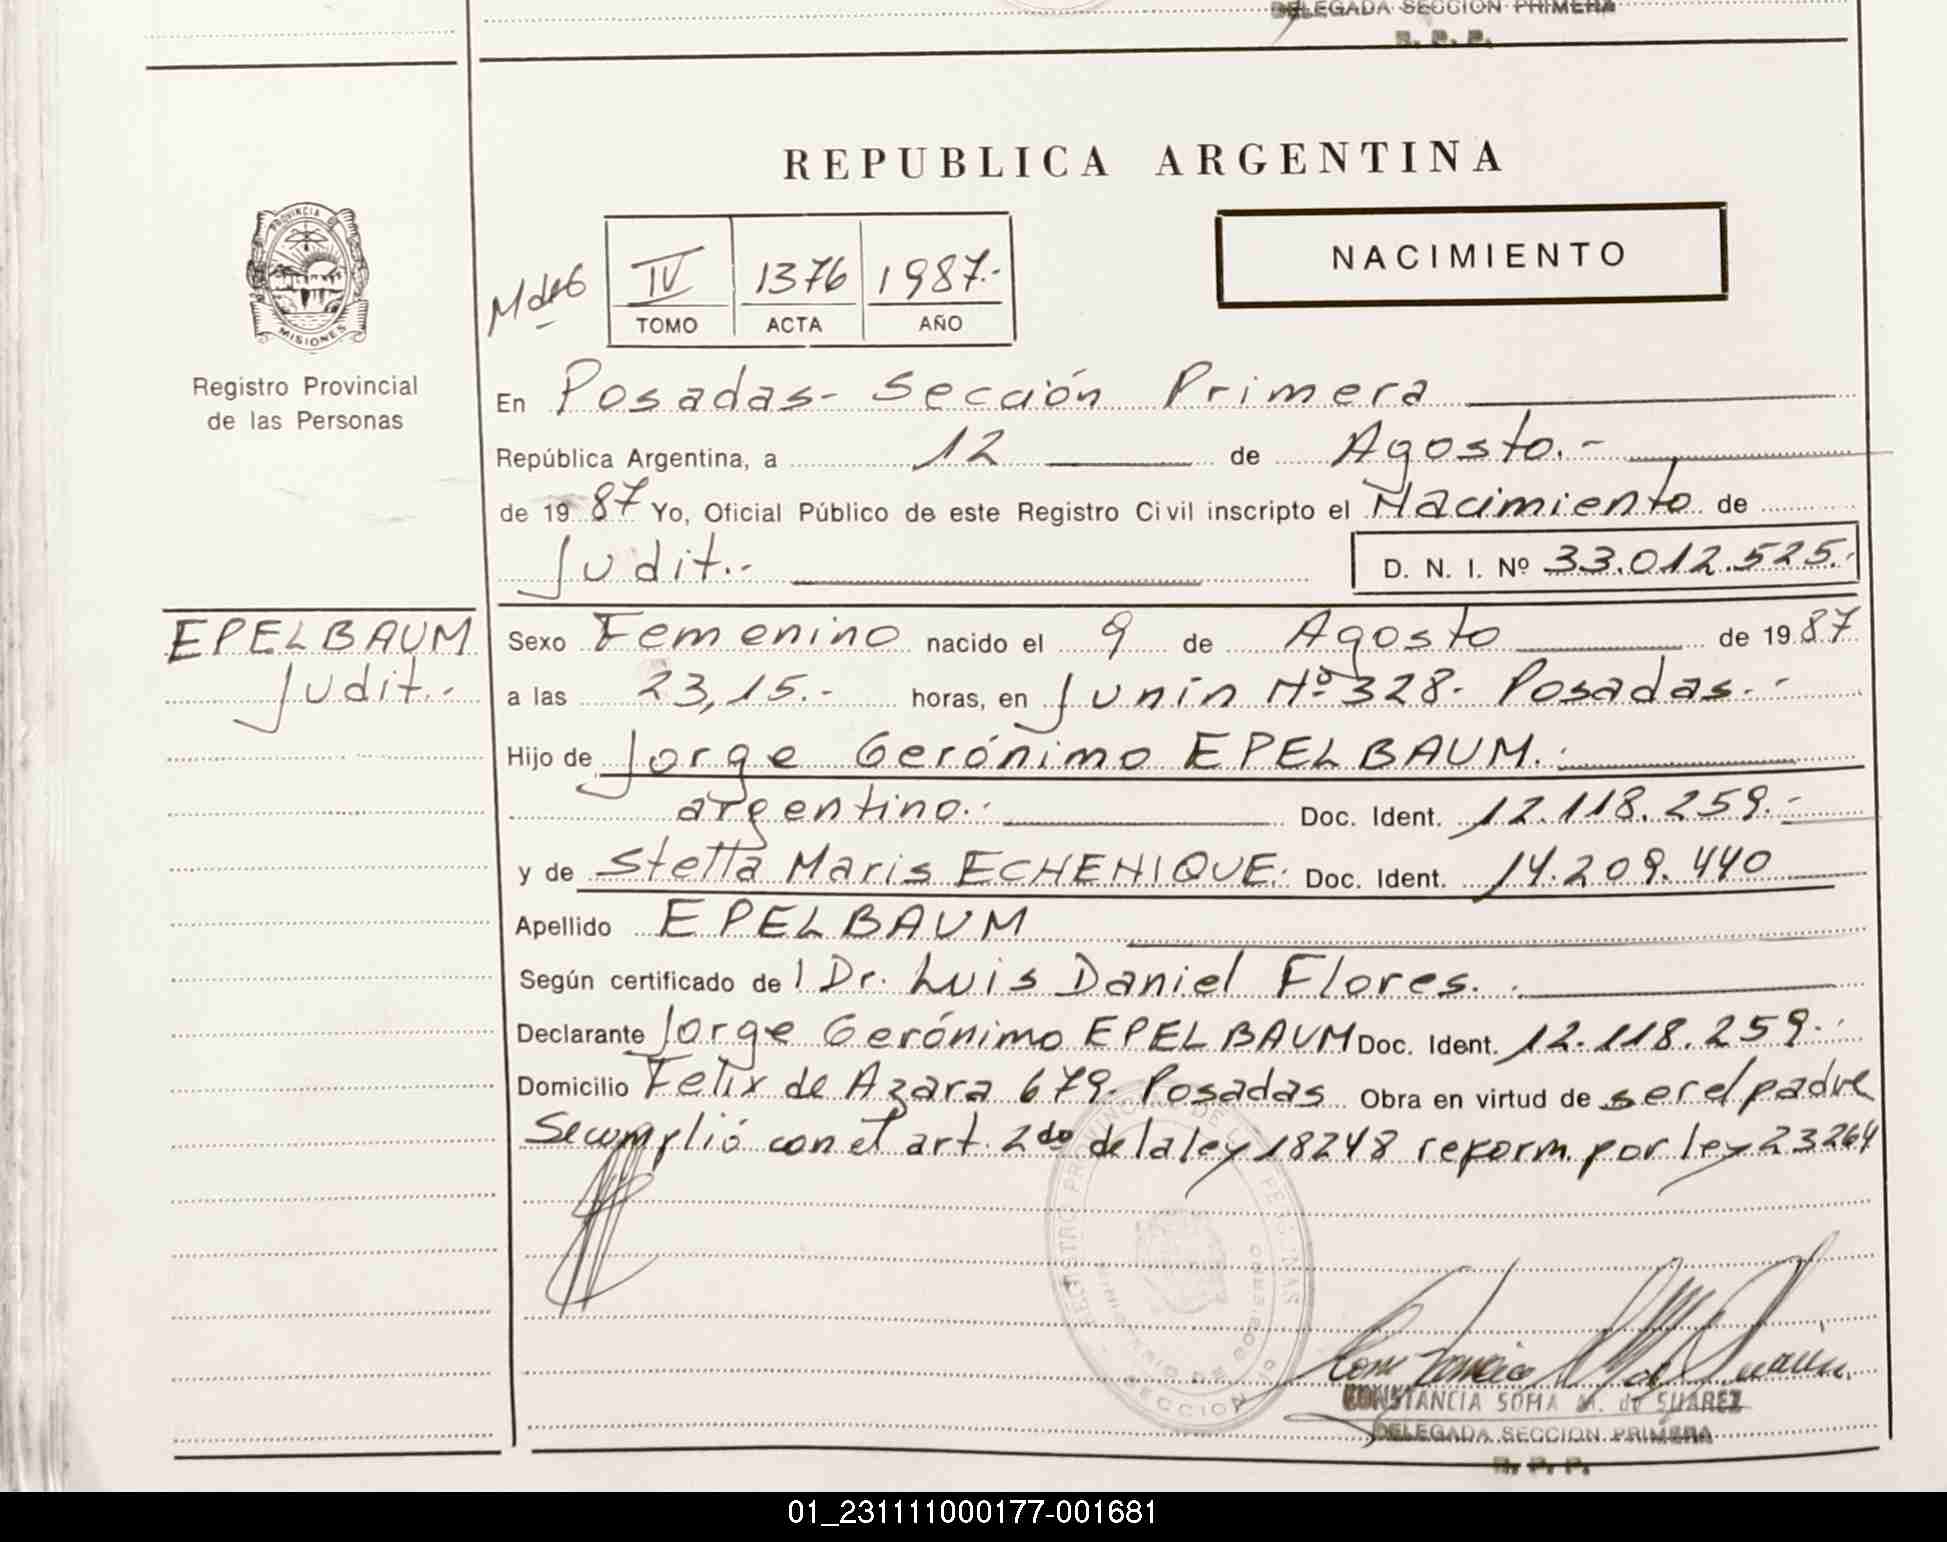 DELEGADA SECCION PRIMERA
R. P. P.
REPUBLICA ARGENTINA
NACIMIENTO
IV 1376 1987.-
TOMO ACTA AÑO
PROVINCIA DE
MISIONES
Registro Provincial
de las Personas
En Posadas- Sección Primera
República Argentina, a 12 de Agosto.-
de 1987 Yo, Oficial Público de este Registro Civil inscripto el Nacimiento de
Judit.-
D. N. I. Nº 33.012.525.-
EPELBAUM
Judit.-
Sexo Femenino nacido el 9 de Agosto de 1987
a las 23,15.- horas, en Junín Nº 328- Posadas.-
Hijo de Jorge Gerónimo EPELBAUM.
argentino.- Doc. Ident. 12.118.259.-
y de Stella Maris ECHENIQUE. Doc. Ident. 14.209.440
Apellido EPELBAUM
Según certificado del Dr. Luis Daniel Flores.
Declarante Jorge Gerónimo EPELBAUM Doc. Ident. 12.118.259.-
Domicilio Felix de Azara 679- Posadas Obra en virtud de ser el padre
Se cumplió con el art. 2do de la ley 18248 reform. por ley 23264
REGISTRO PROVINCIAL DE LAS PERSONAS
MINISTERIO DE GOBIERNO
SECCION 1º
CONSTANCIA SOFIA M. de SUAREZ
DELEGADA SECCION PRIMERA
R. P. P.
01_231111000177-001681